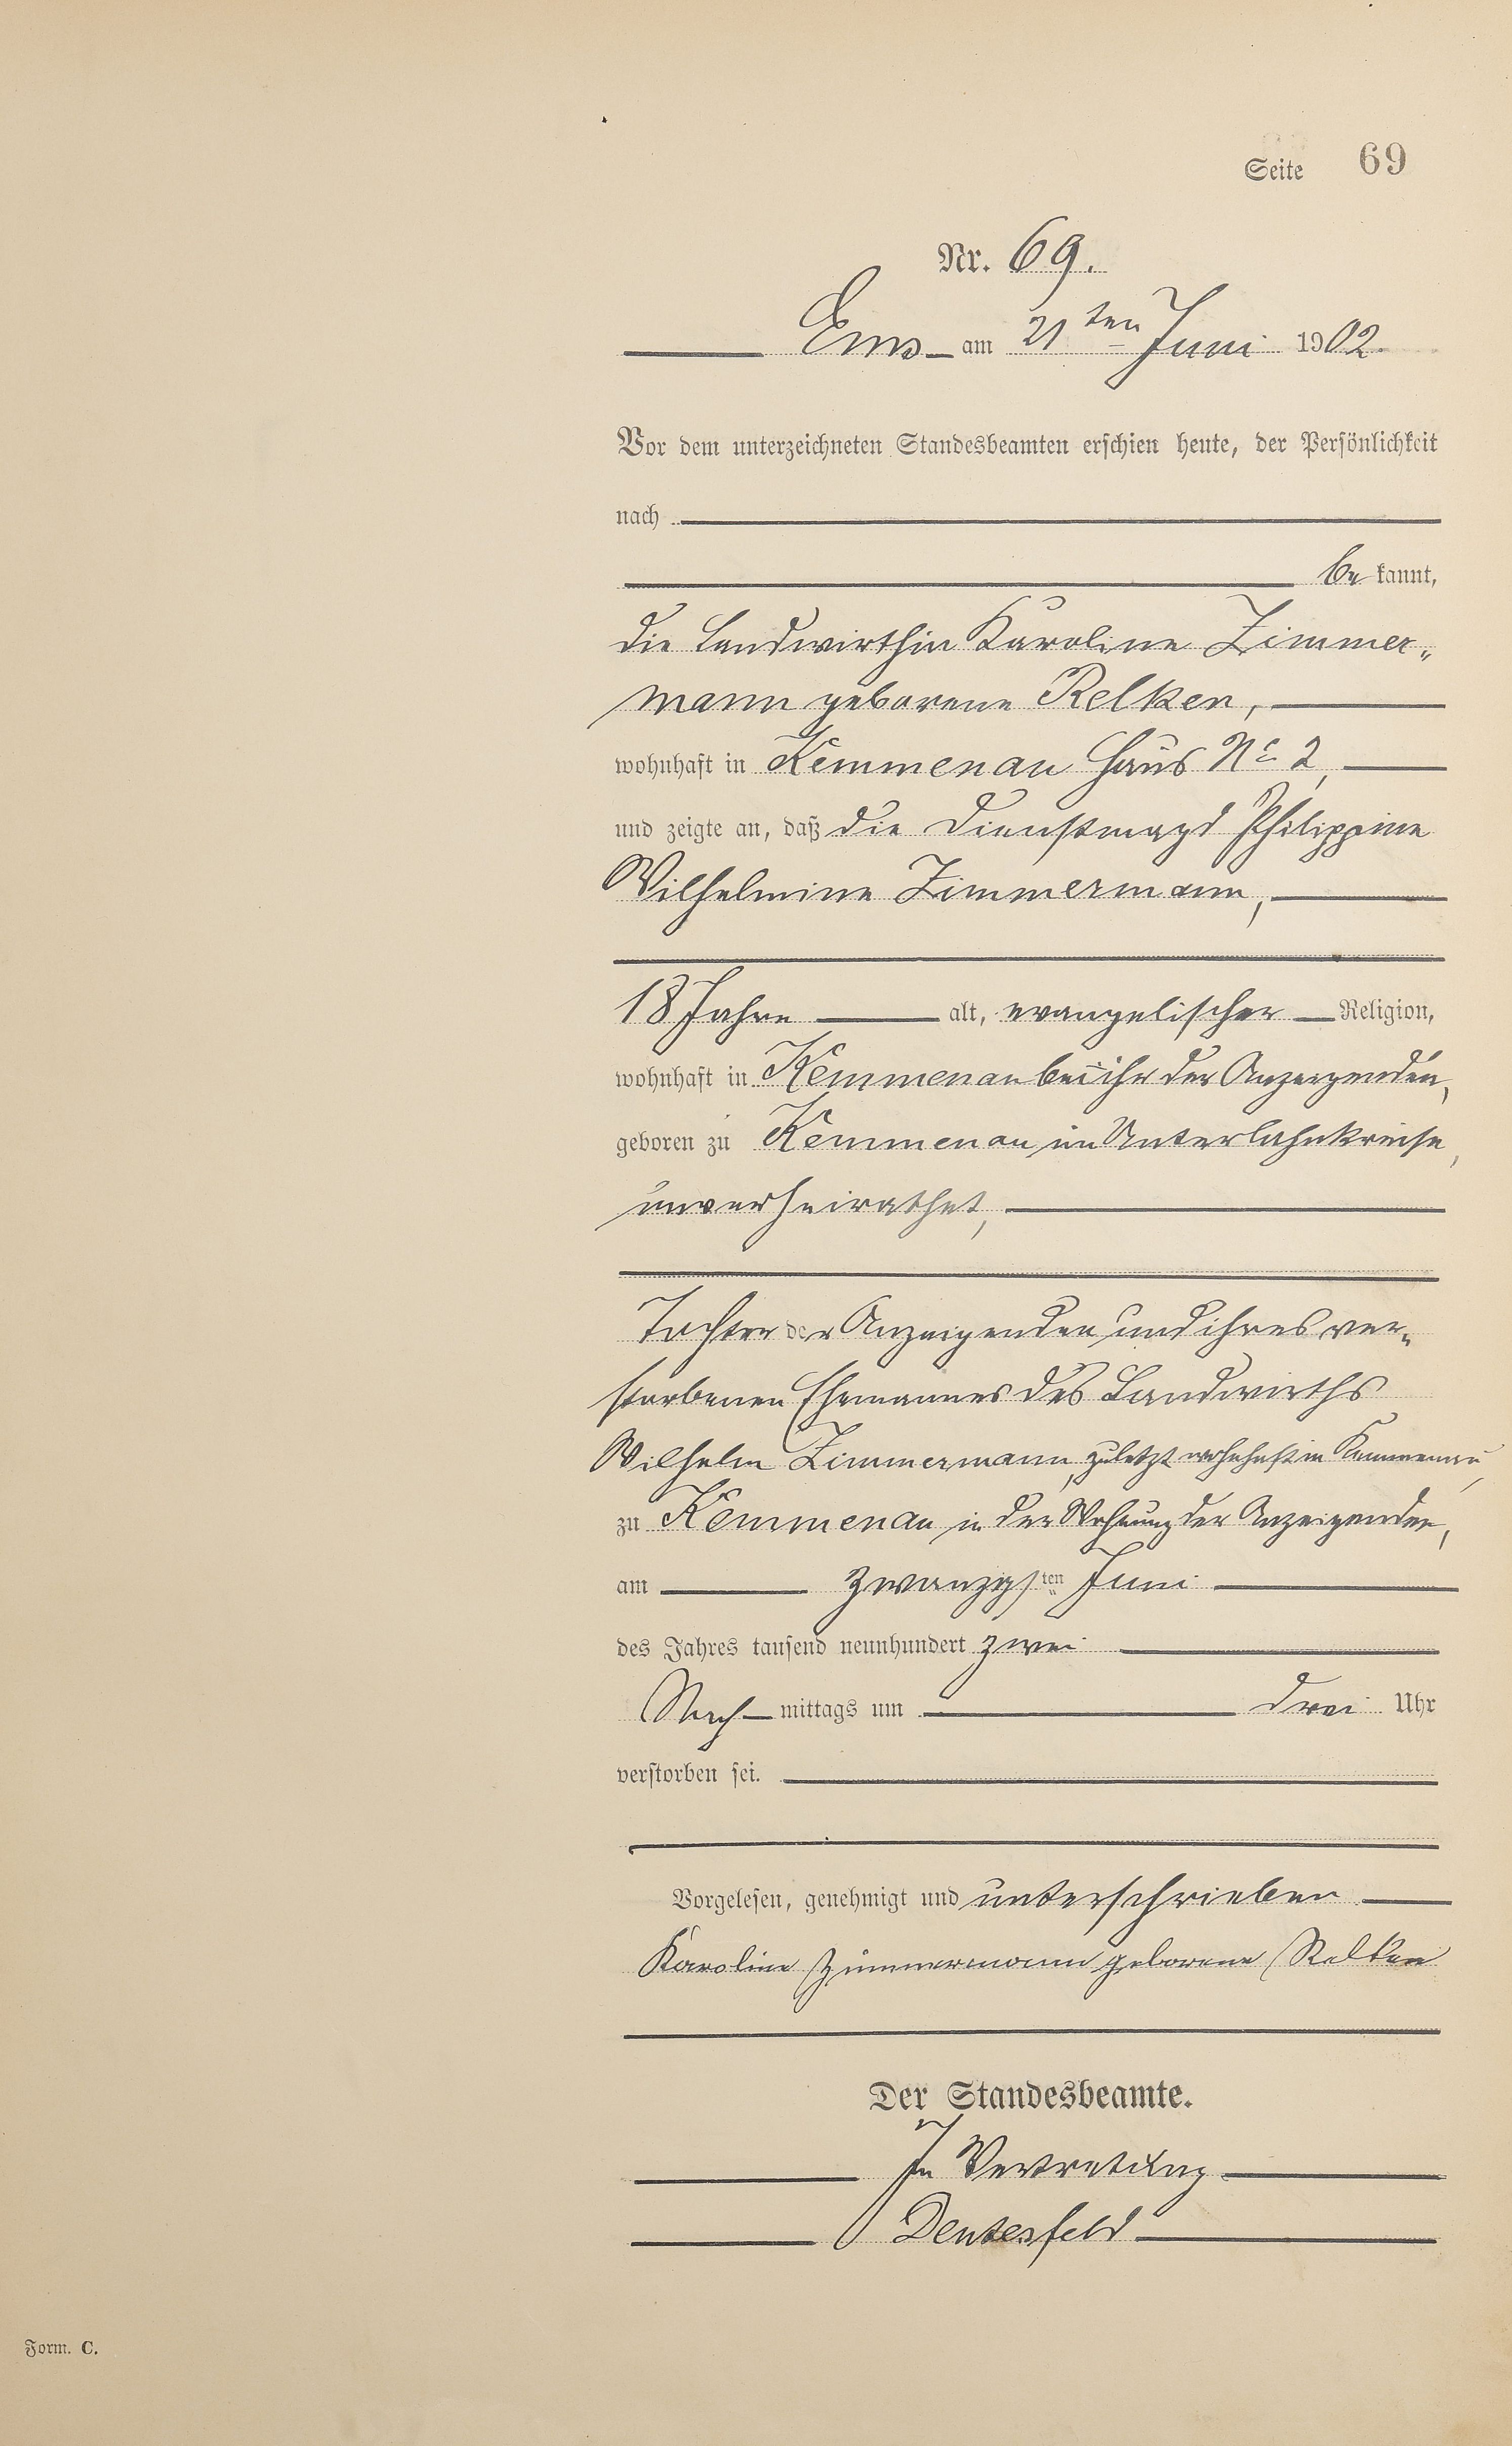 Seite 69
Nr. 69.
Ems am 21ten Juni 1902.
Vor dem unterzeichneten Standesbeamten erschien heute, der Persönlichkeit
nach
bekannt,
die Landwirthin Karoline Zimmer„
mann geborene Relken,
wohnhaft in Kemmenau Haus No 2,
und zeigte an, daß die Dienstmagd Philippine
Wilhelmine Zimmermann,
18 Jahre alt, evangelischer Religion,
wohnhaft in Kemmenau bei ihr der Anzeigenden,
geboren zu Kemmenau im Unterlahnkreise,
unverheirathet,
Tochter der Anzeigenden und ihres ver„
storbenen Ehemannes des Landwirths
Wilhelm Zimmermann, zuletzt wohnhaft in Kemmenau,
zu Kemmenau in der Wohnung der Anzeigenden,
am zwanzigsten Juni
des Jahres tausend neunhundert zwei
Nachmittags um drei Uhr
verstorben sei.
Vorgelesen, genehmigt und unterschrieben
Karoline Zimmermann geborene Relken
Der Standesbeamte.
In Vertretung
Deutesfeld
Form. C.